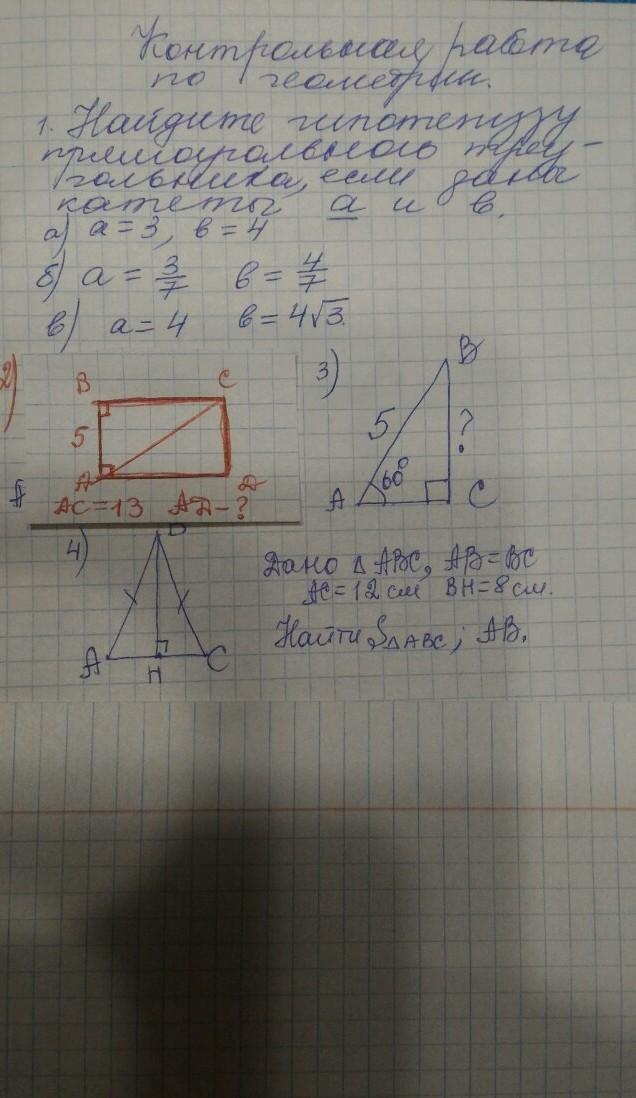 Контрольная работа
по геометрии.
1. Найдите гипотенузу
прямоугольного треу-
гольника, если даны
катеты a и в.
а) a = 3, в = 4
б) a = 3/7 в = 4/7
в) a = 4 в = 4√3.
2)
B C
5
A D
AC = 13 AD - ?
3)
B
5 ?
60°
A C
4)
B
A H C
Дано △ABC, AB = BC
AC = 12 см BH = 8 см.
Найти S△ABC; AB.